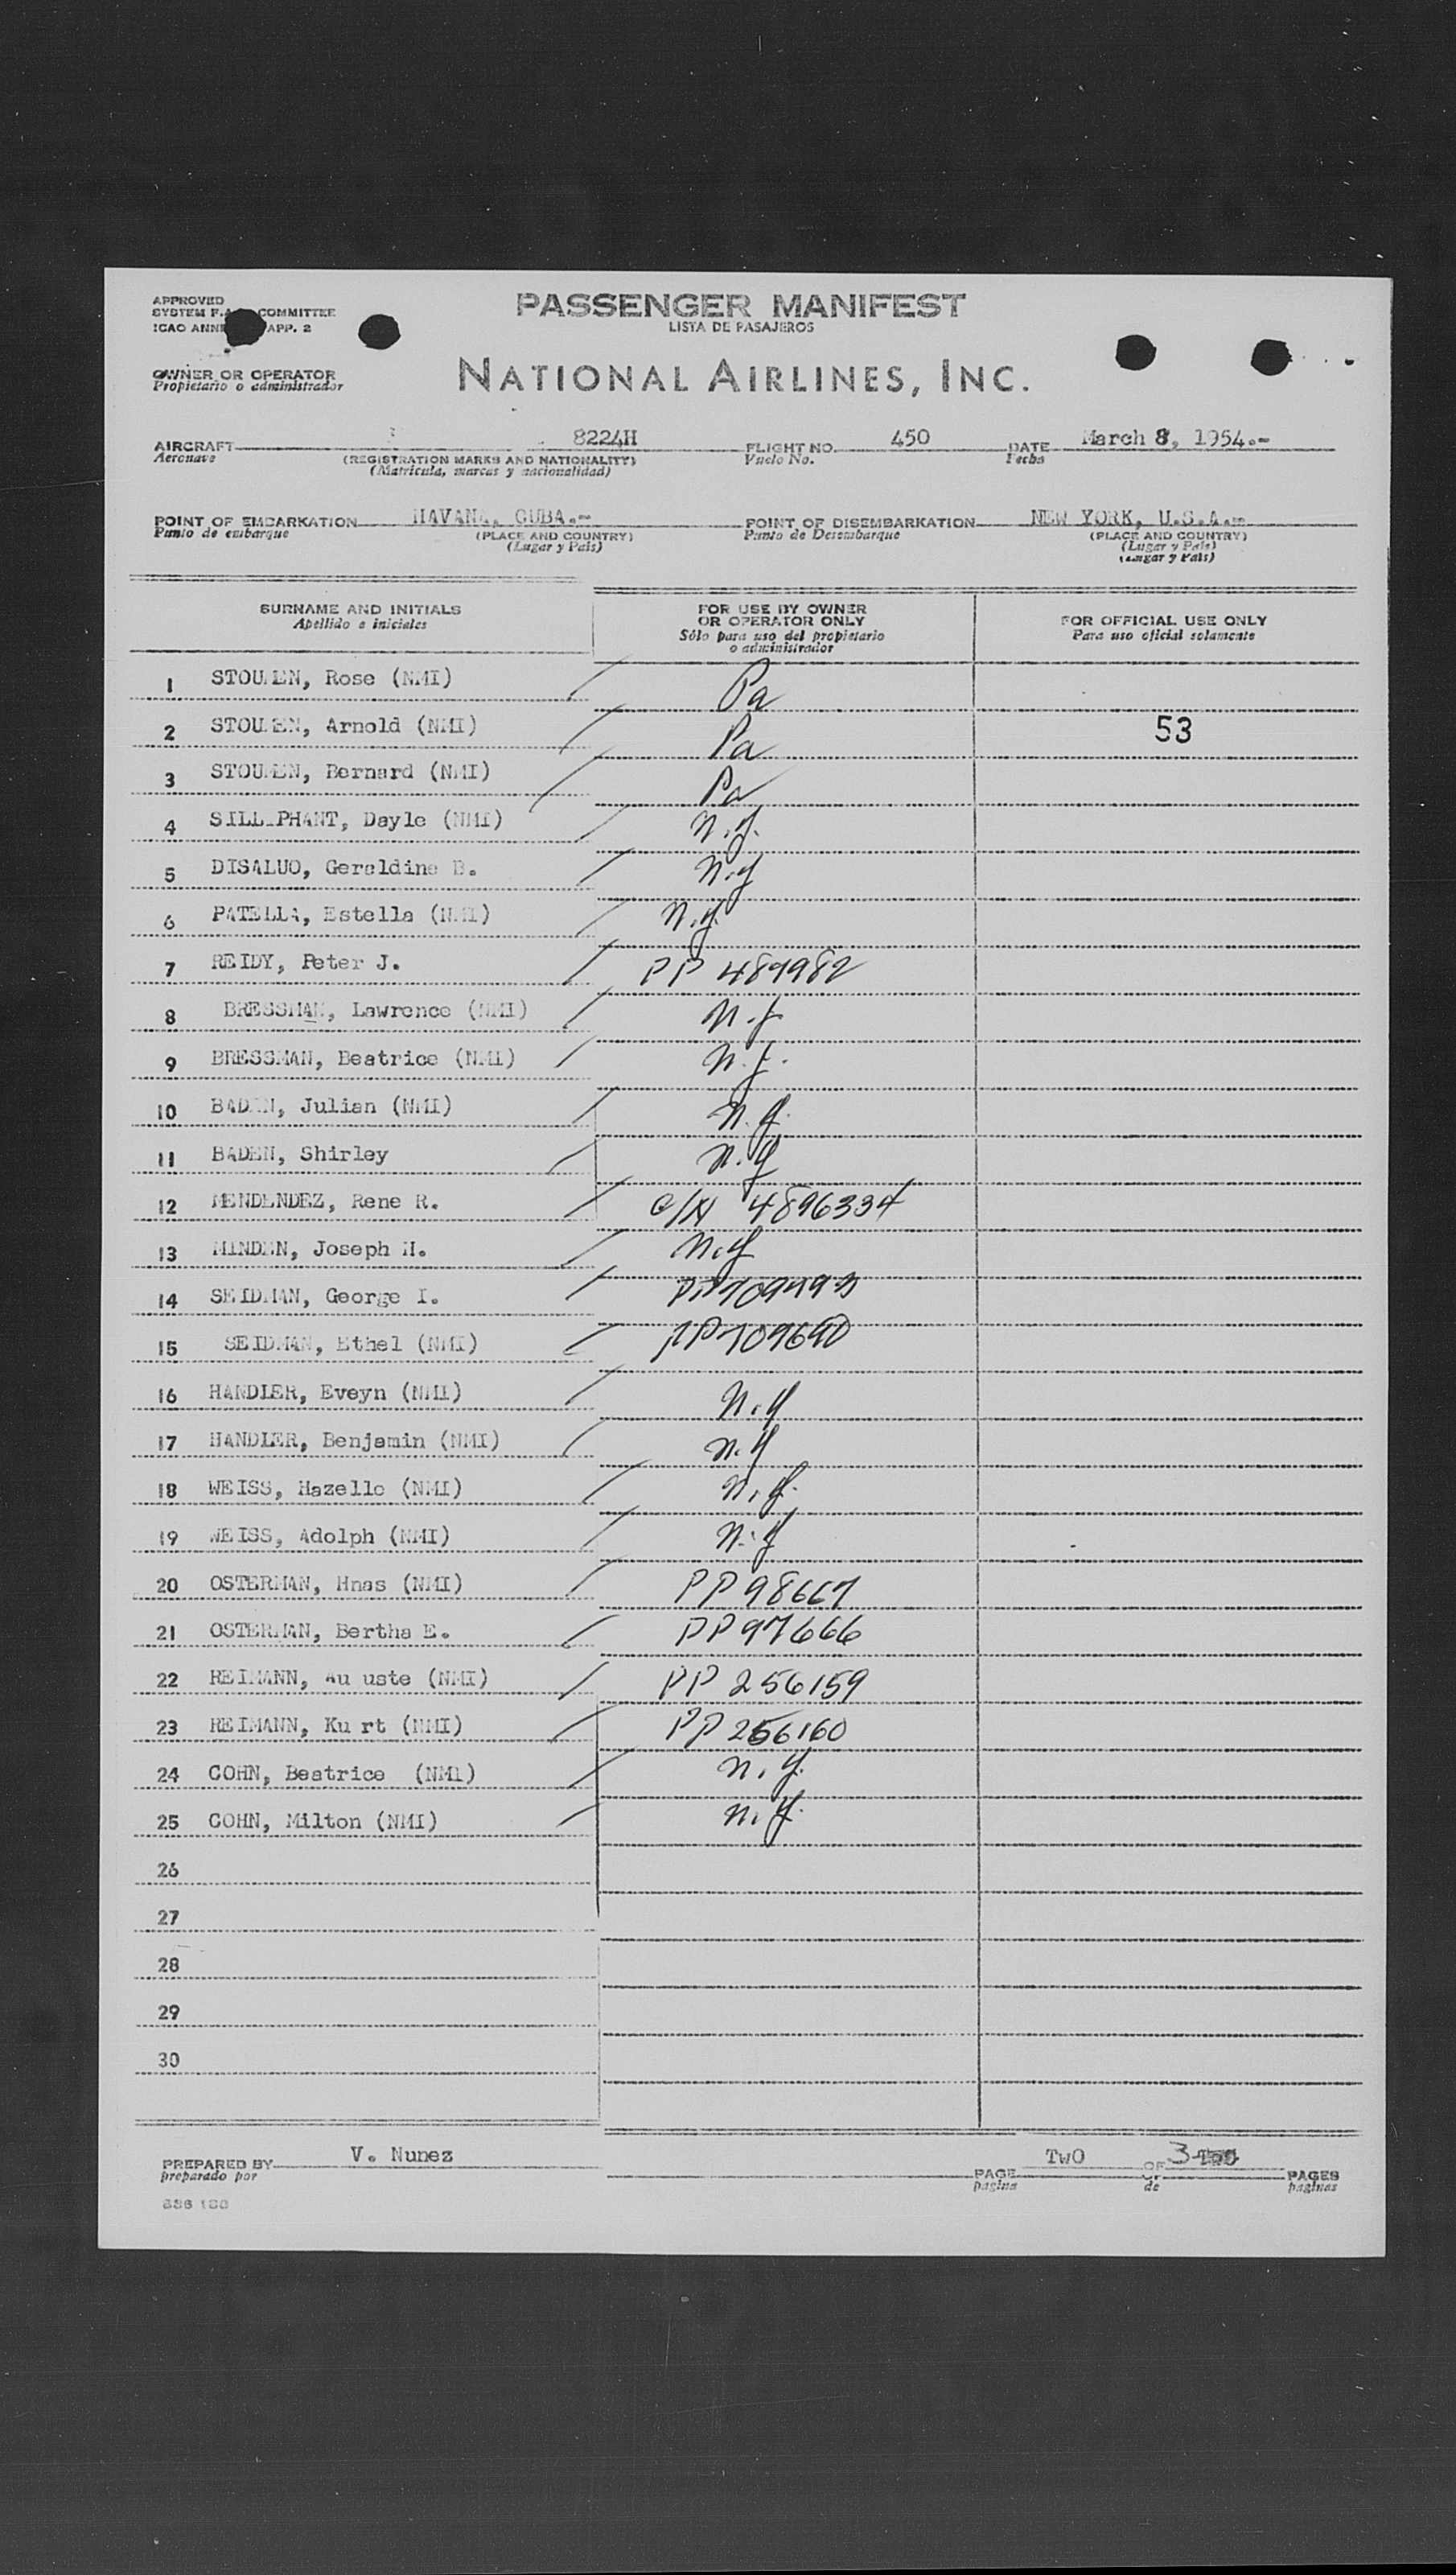 APPROVED
SYSTEM COMMITTEE
ICAO APP. 2
PASSENGER MANIFEST
LISTA DE PASAJEROS
OWNER OR OPERATOR
Propietario o administrador
NATIONAL AIRLINES, INC.
AIRCRAFT 8224H FLIGHT NO. 450 DATE March 8, 1954.-
Aeronave (REGISTRATION MARKS AND NATIONALITY) Vuelo No. Fecha
(Matricula, marcas y nacionalidad)
POINT OF EMBARKATION HAVANA, CUBA.- POINT OF DISEMBARKATION NEW YORK, U.S.A.-
Punto de embarque (PLACE AND COUNTRY) Punto de Desembarque (PLACE AND COUNTRY)
(Lugar y País) (Lugar y País)
(Lugar y País)
SURNAME AND INITIALS FOR USE BY OWNER
Apellido e iniciales OR OPERATOR ONLY FOR OFFICIAL USE ONLY
Sólo para uso del propietario Para uso oficial solamente
o administrador
1 Rose (NMI) Pa
2 Arnold (NMI) Pa 53
3 Bernard (NMI) Pa
4 Dayle (NMI) N.Y.
5 DISALUO, Geraldine B. N.Y
6 PATELLA, Estella (NMI) N.Y.
7 REIDY, Peter J. PP 489982
8 BRESSMAN, Lawrence (NMI) N.J
9 BRESSMAN, Beatrice (NMI) N.J.
10 BADEN, Julian (NMI) N.Y.
11 BADEN, Shirley N.Y
12 MENDENDEZ, Rene R. C/N 4896334
13 MINDEN, Joseph H. N.Y
14 SEIDMAN, George I.
15 SEIDMAN, Ethel (NMI) PP709690
16 HANDLER, Eveyn (NMI) N.Y
17 HANDLER, Benjamin (NMI) N.Y
18 WEISS, Hazelle (NMI) N.Y.
19 WEISS, Adolph (NMI) N.Y
20 OSTERMAN, Hnas (NMI) PP98667
21 OSTERMAN, Bertha E. PP97666
22 REIMANN, Au uste (NMI) PP 256159
23 REIMANN, Ku rt (NMI) PP 256160
24 COHN, Beatrice (NMI) N.Y.
25 COHN, Milton (NMI) N.Y.
26
27
28
29
30
PREPARED BY V. Nunez PAGE TwO OF 3 PAGES
preparado por pagina de paginas